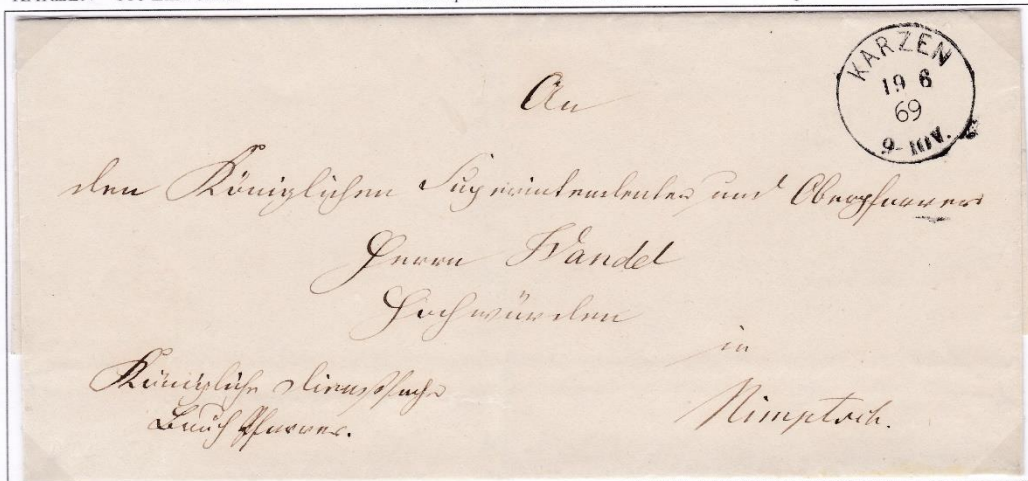 KARZEN
19 6
69
9-10 V.
An
den Königlichen Superintendenten und Oberpfarrer
Herrn Wandel
Hochwürden
in
Nimptsch.
Königliche Dienstsache
Pfarrer.